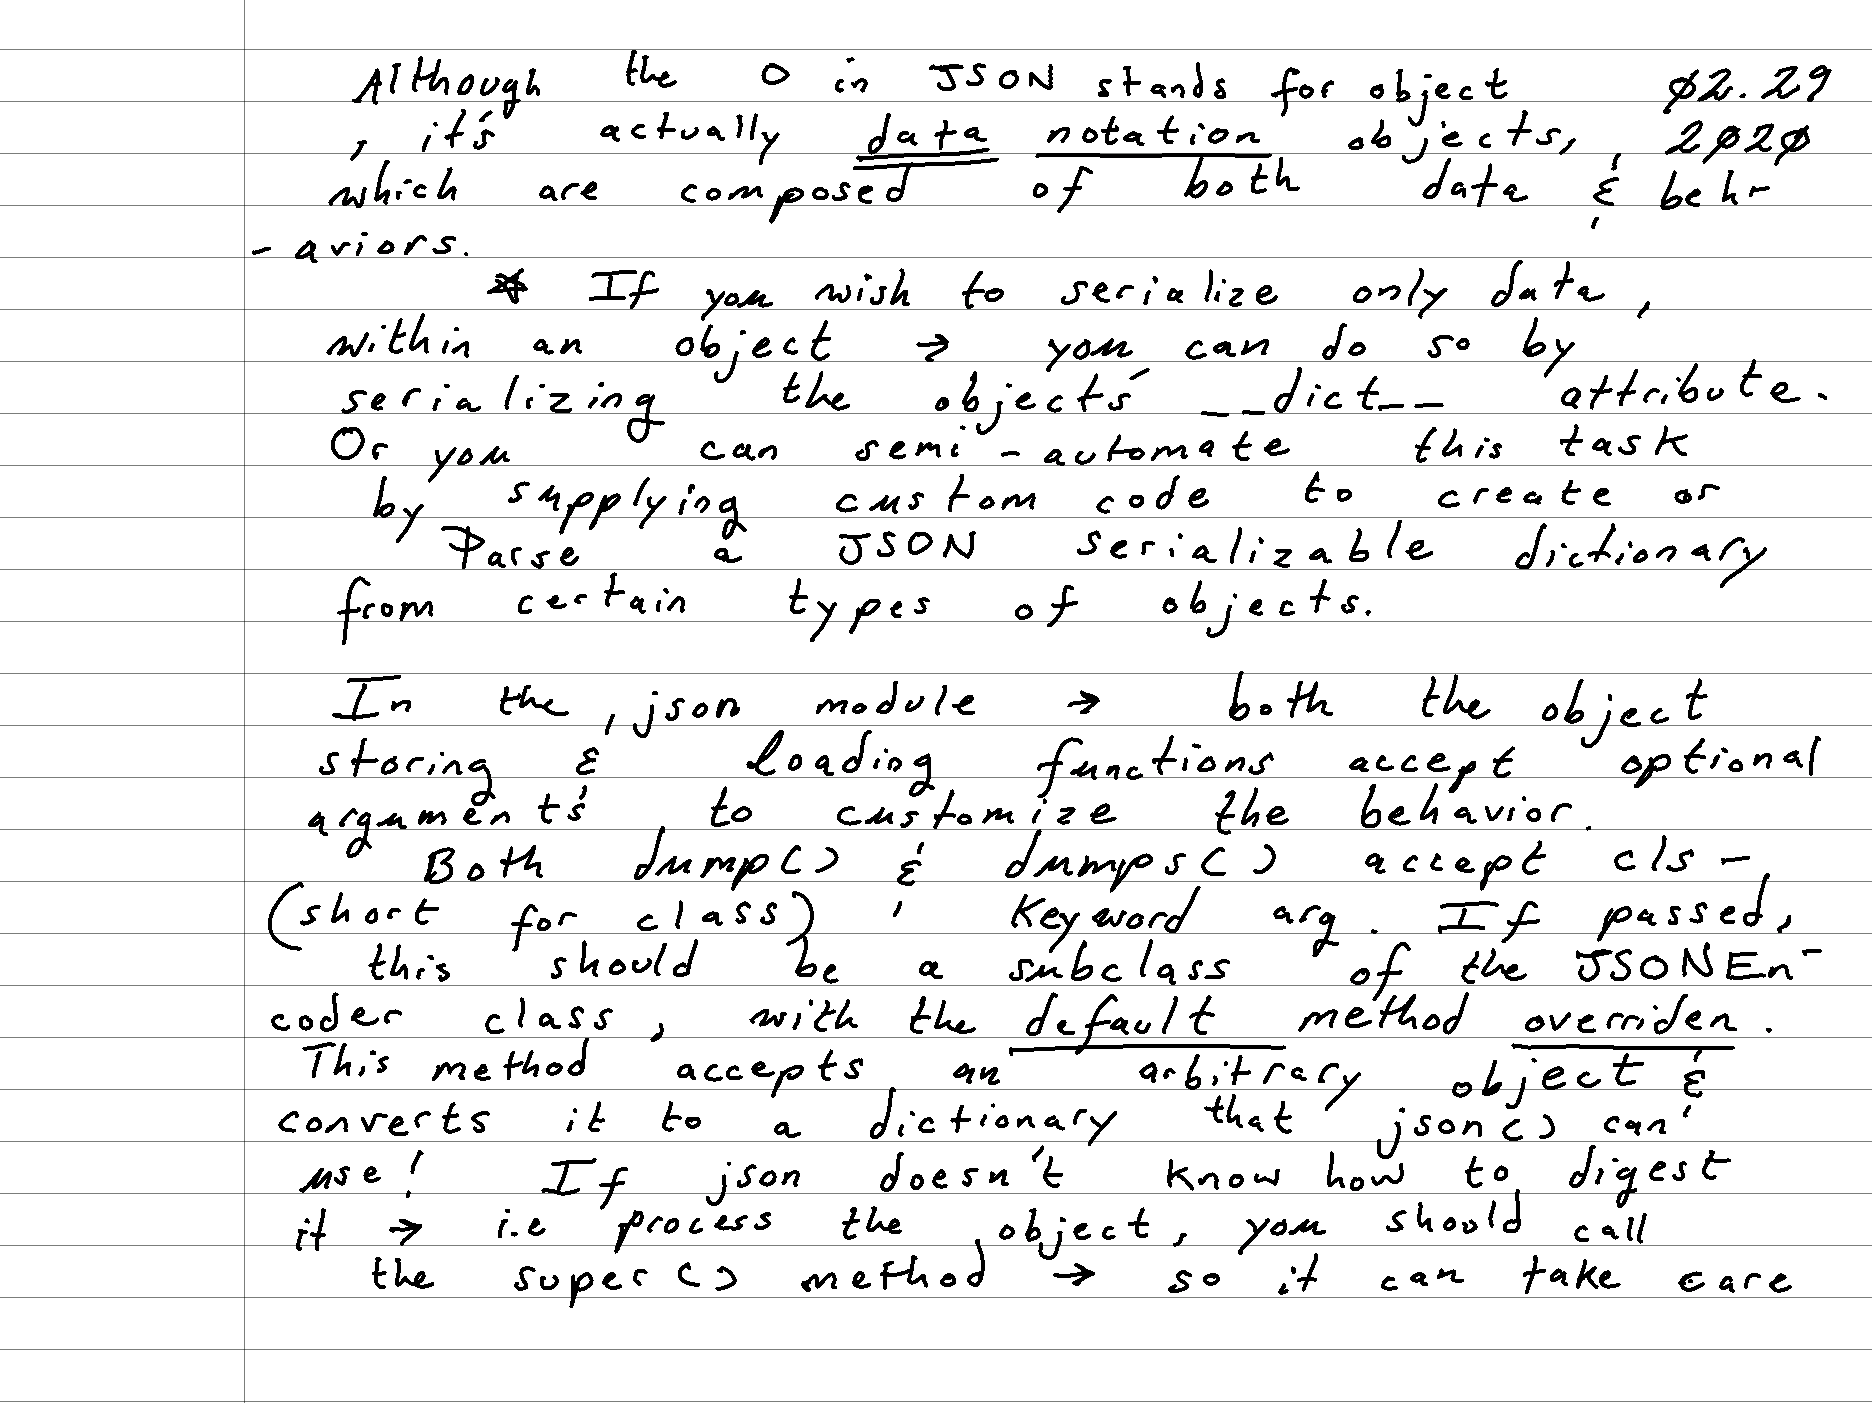 Although the O in JSON stands for object ø2.29
, it's actually data notation objects, 2ø2ø
which are composed of both data & beh-
- aviors.
☆ If you wish to serialize only data,
within an object → you can do so by
serializing the object's __dict__ attribute.
Or you can semi-automate this task
by supplying custom code to create or
Parse a JSON serializable dictionary
from certain types of objects.
In the, json module → both the object
storing & loading functions accept optional
arguments to customize the behavior.
Both dump() & dumps() accept cls -
(short for class) Keyword arg. If passed,
this should be a subclass of the JSONEn-
coder class, with the default method overriden.
This method accepts an arbitrary object &
converts it to a dictionary that json() can
use! If json doesn't know how to digest
it → i.e process the object, you should call
the super() method → so it can take care